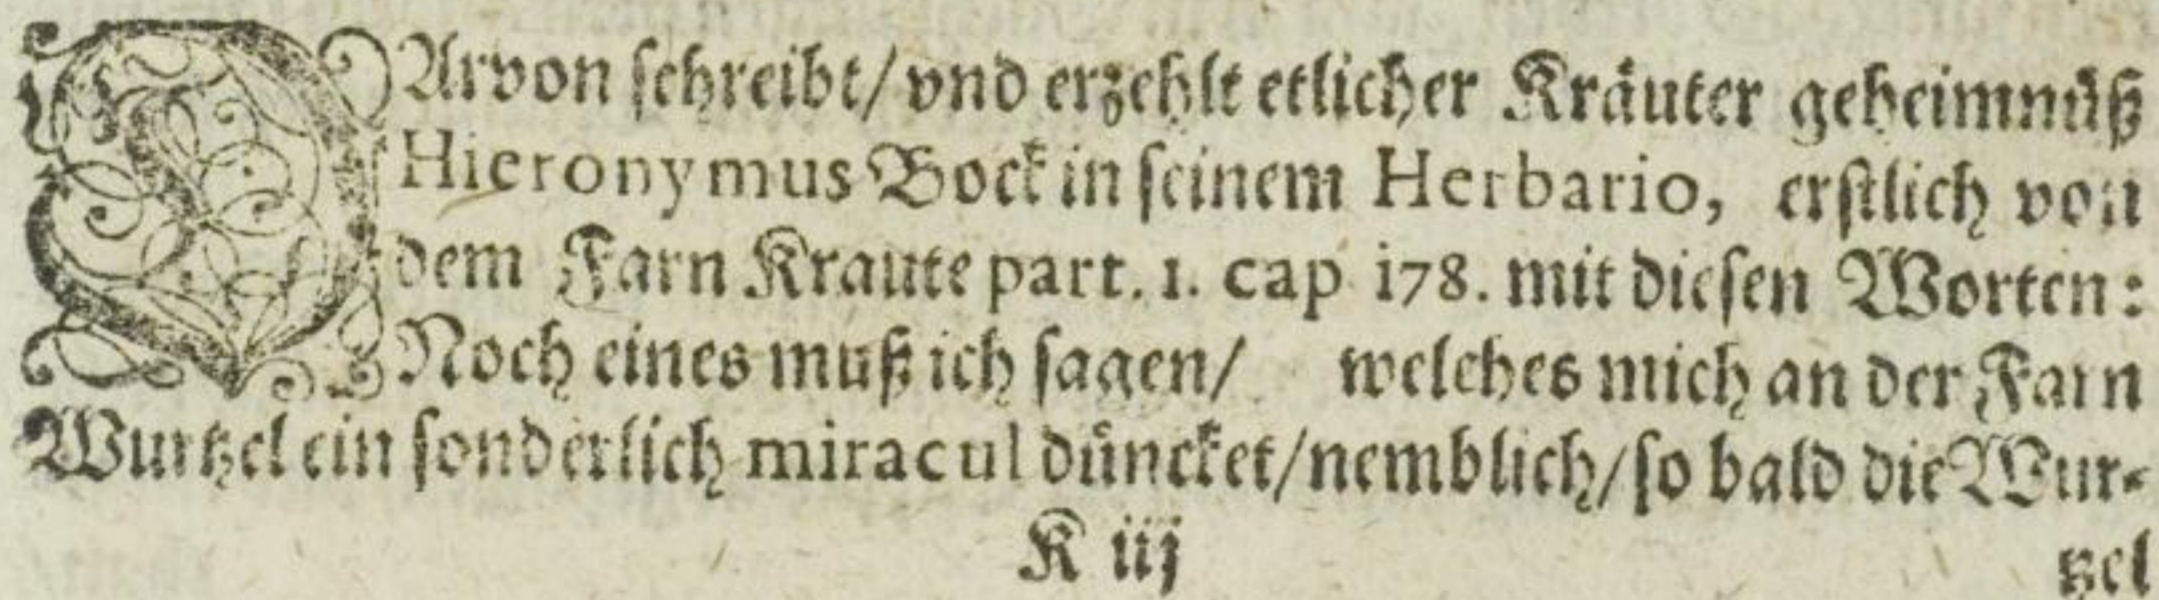 DArvon ſchreibt/ vnd erzehlt etlicher Kräuter geheimnüß
Hieronymus Bock in ſeinem Herbario, erſtlich von
dem Farn Kraute part. 1. cap 178. mit dieſen Worten:
Noch eines muß ich ſagen/ welches mich an der Farn
Wurtzel ein ſonderlich miracul düncket/ nemblich/ ſo bald die Wur-
K iij
tzel